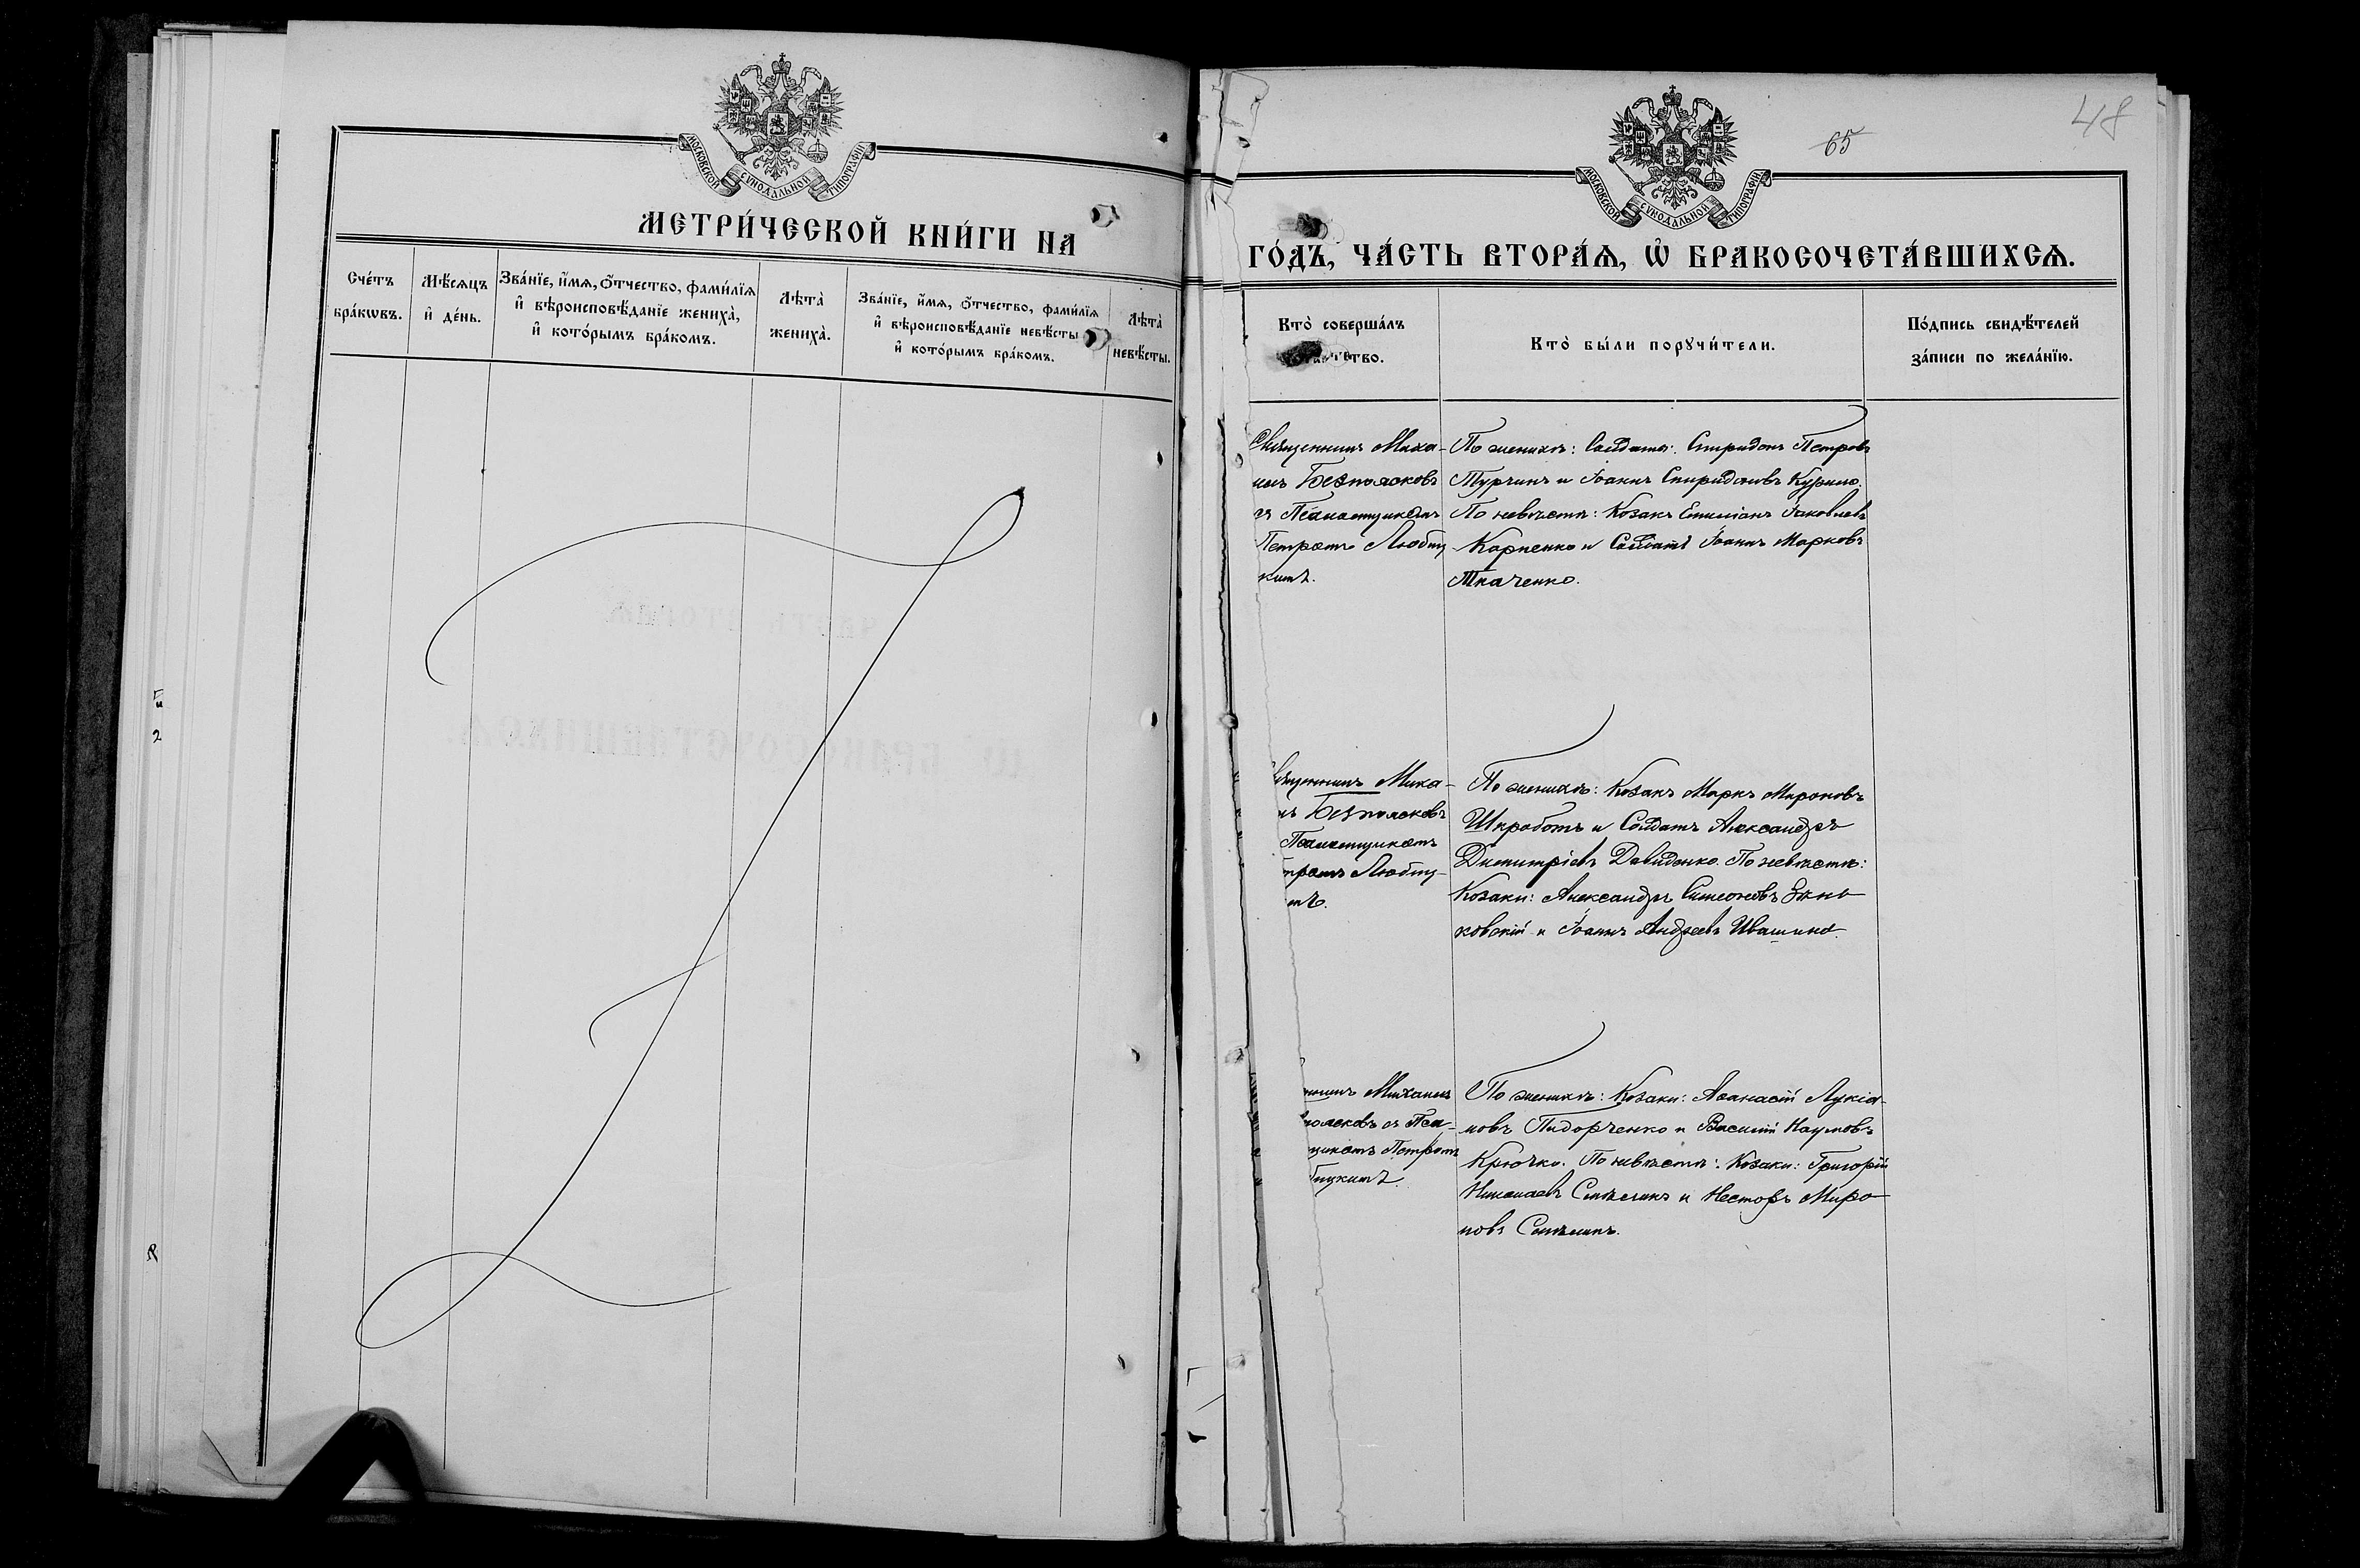 МОСКОВСКОЙ СѴНОДАЛЬНОЙ ТИПОГРАФІИ
МЕТРИ́ЧЕСКОЙ КНИ́ГИ НА
Сче́тъ бра́кѡвъ.
Мѣ́сѧцъ и҆ де́нь.
Зва́нїе, и҆́мѧ, ѻ҆́тчество, фами́лїѧ
и҆ вѣроисповѣ́данїе жениха̀,
и҆ кото́рымъ бра́комъ.
Лѣта̀ жениха̀.
Зва́нїе, и҆́мѧ, ѻ҆́тчество, фами́лїѧ
и҆ вѣроисповѣ́данїе невѣ́сты
и҆ кото́рымъ бра́комъ.
Лѣта̀ невѣ́сты.
65
48
МОСКОВСКОЙ СѴНОДАЛЬНОЙ ТИПОГРАФІИ
ГО́ДЪ, ЧА́СТЬ ВТОРА́Ѧ, Ѡ҆ БРАКОСОЧЕТА́ВШИХСѦ.
Кто̀ соверша́лъ
тво.
Кто̀ бы́ли порꙋчи́тели.
По́дпись свидѣ́телей
за́писи по жела́нїю.
Священникъ Миха-
илъ Безпоясковъ
съ Псаломщикомъ
Петромъ Любиц
кимъ.
По женихѣ: Солдаты: Спиридонъ Петровъ
Турчинъ и Іоаннъ Спиридоновъ Курило.
По невѣстѣ: Козакъ Емиліанъ Іаковлевъ
Карпенко и Солдатъ Іоаннъ Марковъ
Ткаченко.
священникъ Миха-
лъ Безпоясковъ
Псаломщикомъ
тромъ Любиц-
мъ.
По женихѣ: Козакъ Маркъ Мироновъ
Шкроботъ и Солдатъ Александръ
Димитріевъ Давиденко. По невѣстѣ:
Козаки: Александръ Симеоновъ Зѣнь
ковскій и Іоаннъ Андреевъ Ивашина.
нникъ Михаилъ
поясковъ съ Псал-
щикомъ Петромъ
бицкимъ.
По женихѣ: Козаки: Аѳанасій Лукіа-
новъ Пидорченко и Василій Наумовъ
Крючко. По невѣстѣ: Козаки: Григорій
Николаевъ Симъ и Несторъ Миро
новъ